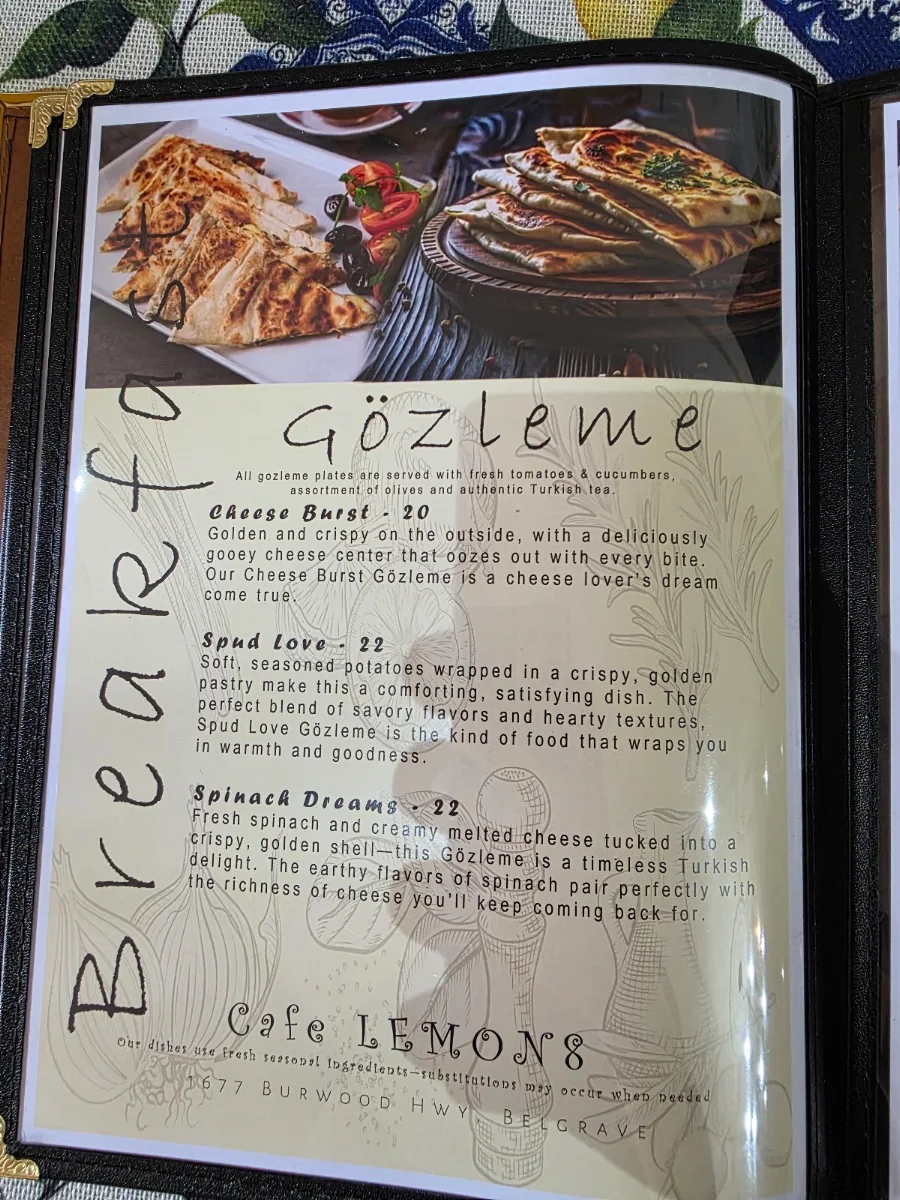 Breakfast
Gözleme
All gozleme plates are served with fresh tomatoes & cucumbers,
assortment of olives and authentic Turkish tea.
Cheese Burst - 20
Golden and crispy on the outside, with a deliciously
gooey cheese center that oozes out with every bite.
Our Cheese Burst Gözleme is a cheese lover's dream
come true.
Spud Love - 22
Soft, seasoned potatoes wrapped in a crispy, golden
pastry make this a comforting, satisfying dish. The
perfect blend of savory flavors and hearty textures,
Spud Love Gözleme is the kind of food that wraps you
in warmth and goodness.
Spinach Dreams - 22
Fresh spinach and creamy melted cheese tucked into a
crispy, golden shell—this Gözleme is a timeless Turkish
delight. The earthy flavors of spinach pair perfectly with
the richness of cheese you'll keep coming back for.
Cafe LEMON8
Our dishes use fresh seasonal ingredients—substitutions may occur when needed
1677 BURWOOD HWY BELGRAVE